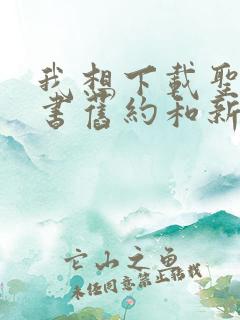 我想下載聖
書舊約和新
它山之魚
未经同意禁止搭載